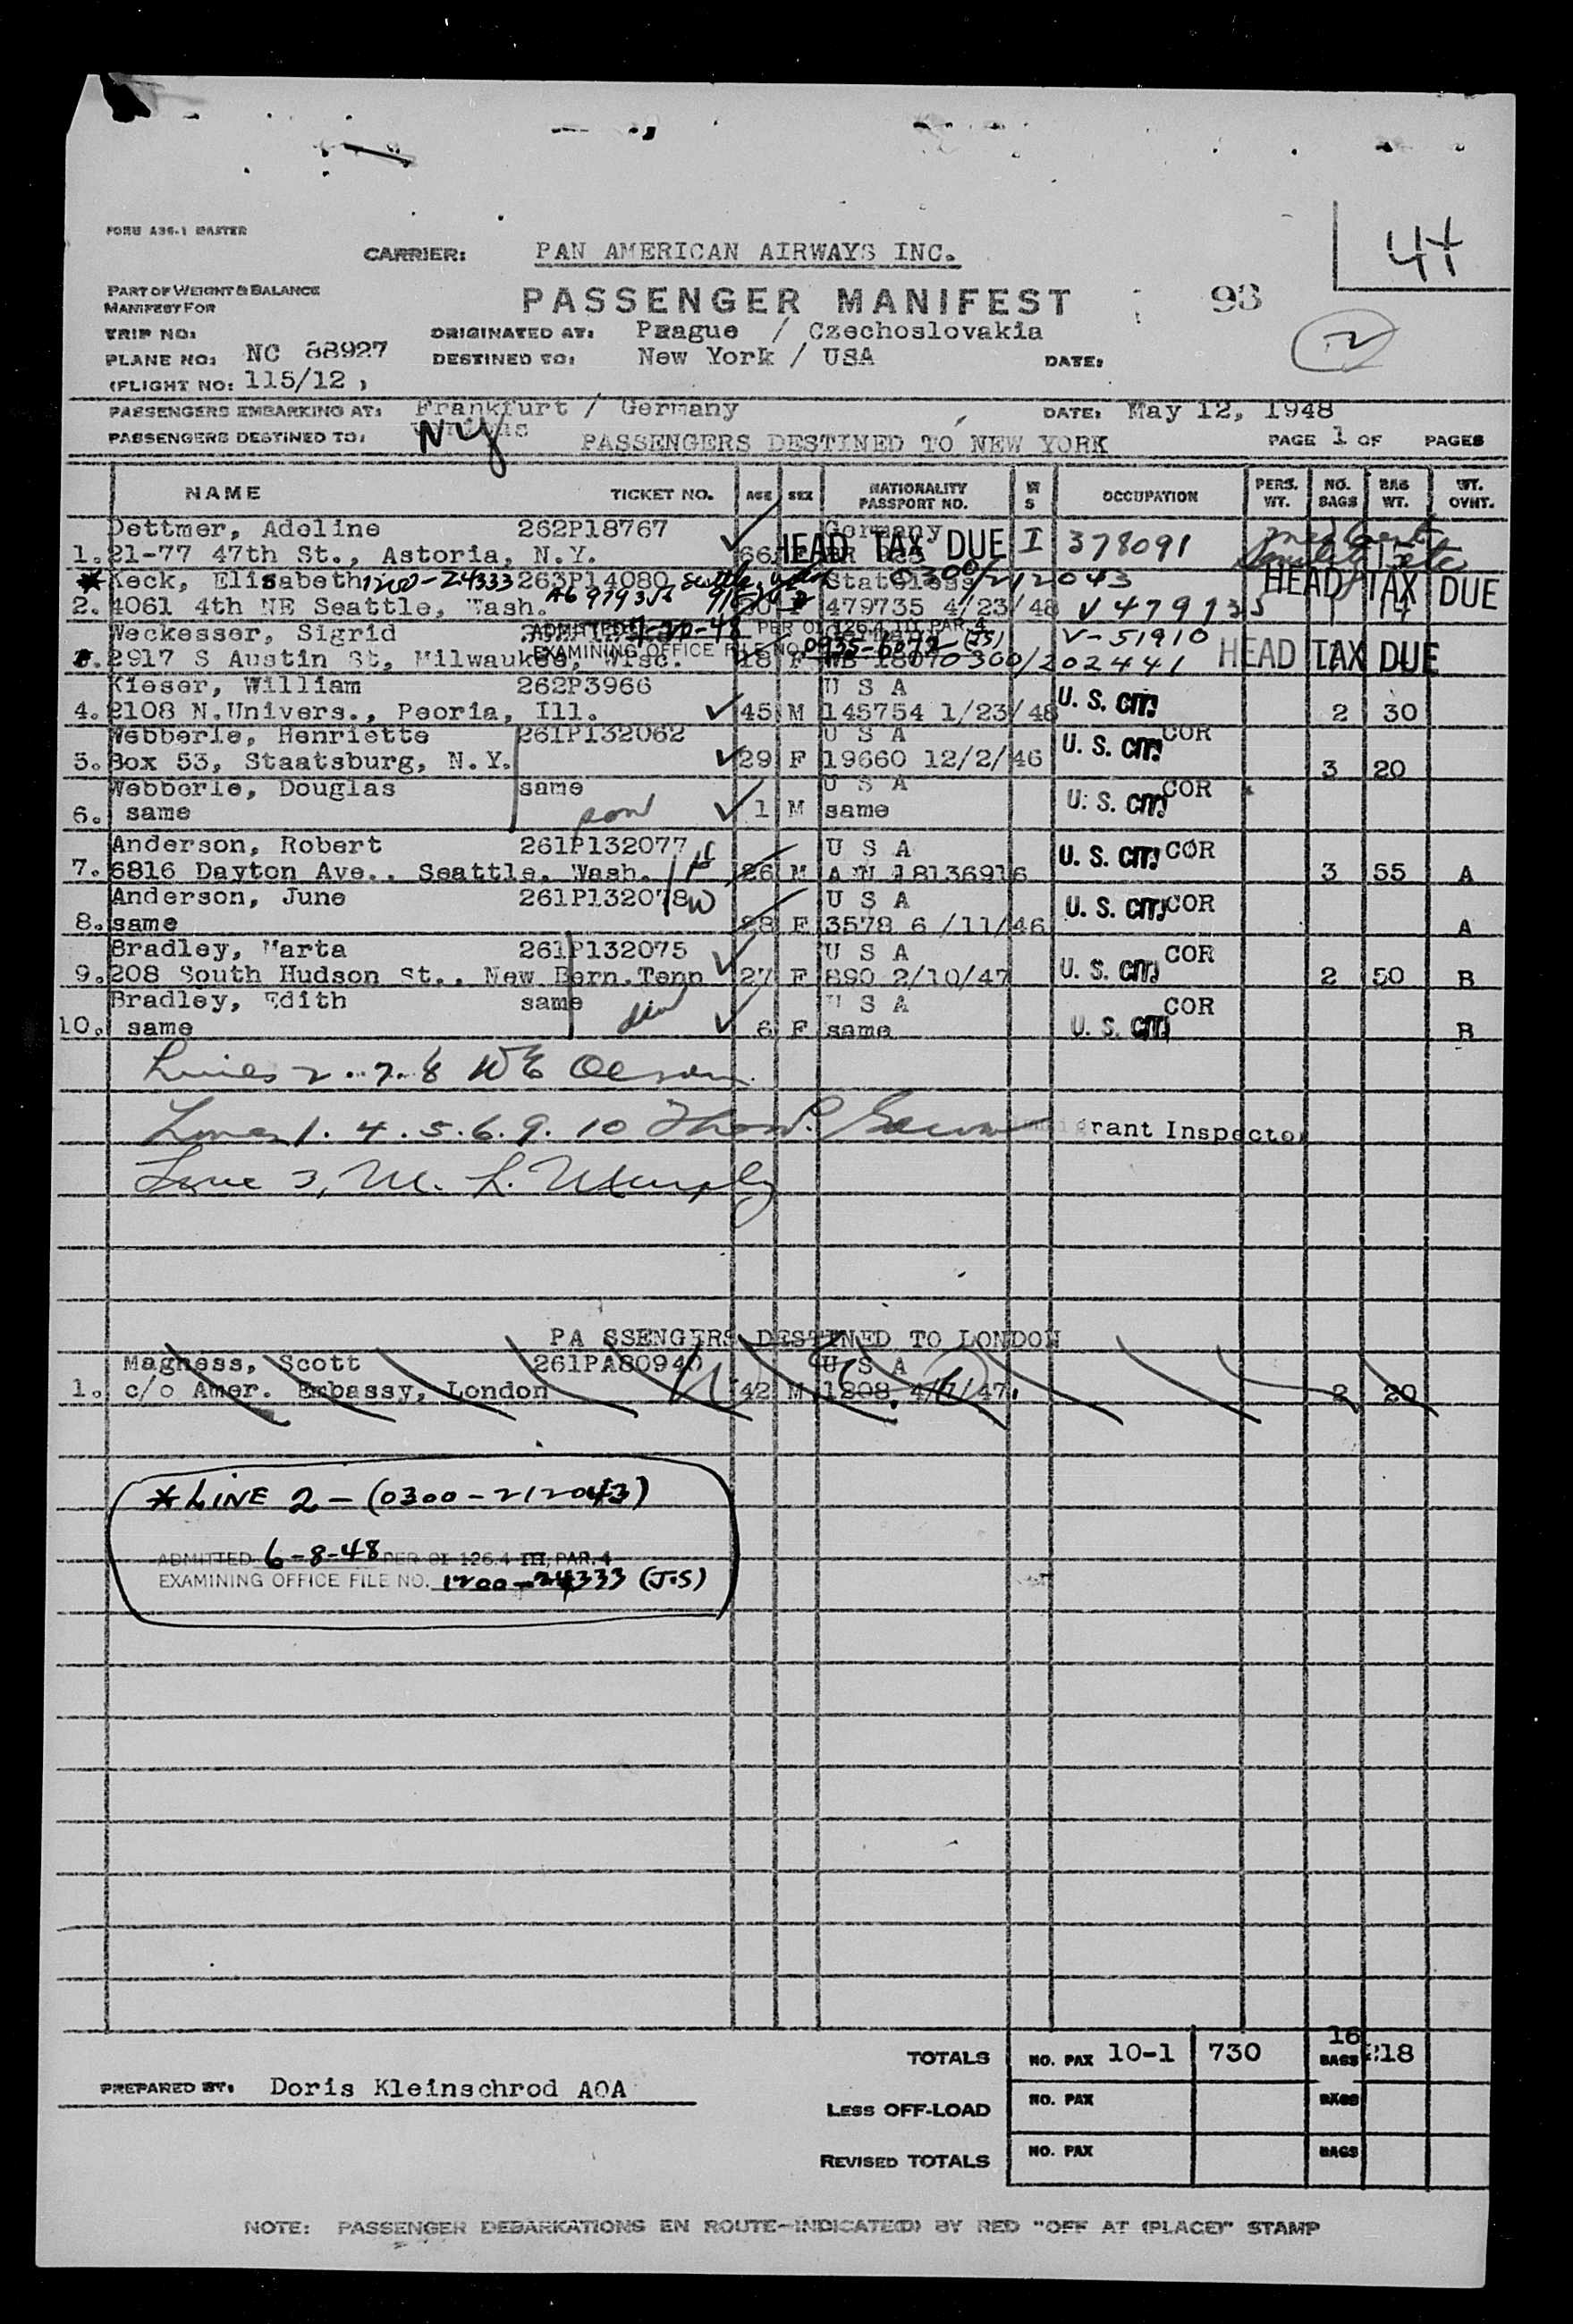 FORM A36-1 MASTER
CARRIER: PAN AMERICAN AIRWAYS INC.
44
PART OF WEIGHT & BALANCE
MANIFEST FOR
PASSENGER MANIFEST
93
TRIP NO:
ORIGINATED AT: Prague / Czechoslovakia
2
PLANE NO: NC 88927
DESTINED TO: New York / USA
DATE:
(FLIGHT NO: 115/12 )
PASSENGERS EMBARKING AT: Frankfurt / Germany
DATE: May 12, 1948
PASSENGERS DESTINED TO: NY
PASSENGERS DESTINED TO NEW YORK
PAGE 1 OF PAGES
NAME TICKET NO. AGE SEX NATIONALITY PASSPORT NO. W S OCCUPATION PERS. WT. NO. BAGS BAG WT. WT. OVHT.
Dettmer, Adeline 262P18767 Germany
1. 21-77 47th St., Astoria, N.Y. 66 HEAD TAX DUE I 378091
* Keck, Elisabeth 1200-24333 263P14080 Seattle, Stateless 0300/212043
2. 4061 4th NE Seattle, Wash. 479735 4/23/48 V479735 1 14 HEAD TAX DUE
Weckesser, Sigrid ADMITTED 7-20-48 PER OI 126.4 III, PAR. 4 V-51910
3. 2917 S Austin St, Milwaukee, Wisc. EXAMINING OFFICE FILE NO. 0935-6372 (JS) 18 F 0300/202441 HEAD TAX DUE
Kieser, William 262P3966 U S A
4. 2108 N.Univers., Peoria, Ill. 45 M 145754 1/23/48 U. S. CIT. 2 30
Webberle, Henriette 261P132062 U S A COR
5. Box 53, Staatsburg, N.Y. 29 F 19660 12/2/46 U. S. CIT. 3 20
Webberle, Douglas same U S A COR
6. same son 1 M same U. S. CIT.
Anderson, Robert 261P132077 U S A COR
7. 6816 Dayton Ave., Seattle, Wash. 26 M A N 18136916 U. S. CIT. 3 55 A
Anderson, June 261P132078 W U S A COR
8. same 28 F 3578 6 /11/46 U. S. CIT. A
Bradley, Marta 261P132075 U S A COR
9. 208 South Hudson St., New Bern.Tenn 27 F 890 2/10/47 U. S. CIT. 2 50 B
Bradley, Edith same U S A COR
10. same 6 F same U. S. CIT. B
Lines 2.7.8 WE Olesen
Lines 1. 4. 5. 6. 9. 10 Immigrant Inspector
Line 3, M. L. Murphy
PA SSENGERS DESTINED TO LONDON
Magness, Scott 261PA80940 U S A
1. c/o Amer. Embassy, London 42 M 1208 47 2 20
* LINE 2 - (0300-212043)
ADMITTED 6-8-48 PER OI 126.4 III, PAR. 4
EXAMINING OFFICE FILE NO. 1200-24333 (J.S)
TOTALS NO. PAX 10-1 730 16 BAGS 218
PREPARED BY: Doris Kleinschrod AOA
LESS OFF-LOAD NO. PAX BAGS
REVISED TOTALS NO. PAX BAGS
NOTE: PASSENGER DEBARKATIONS EN ROUTE-INDICATE(D) BY RED "OFF AT (PLACE)" STAMP